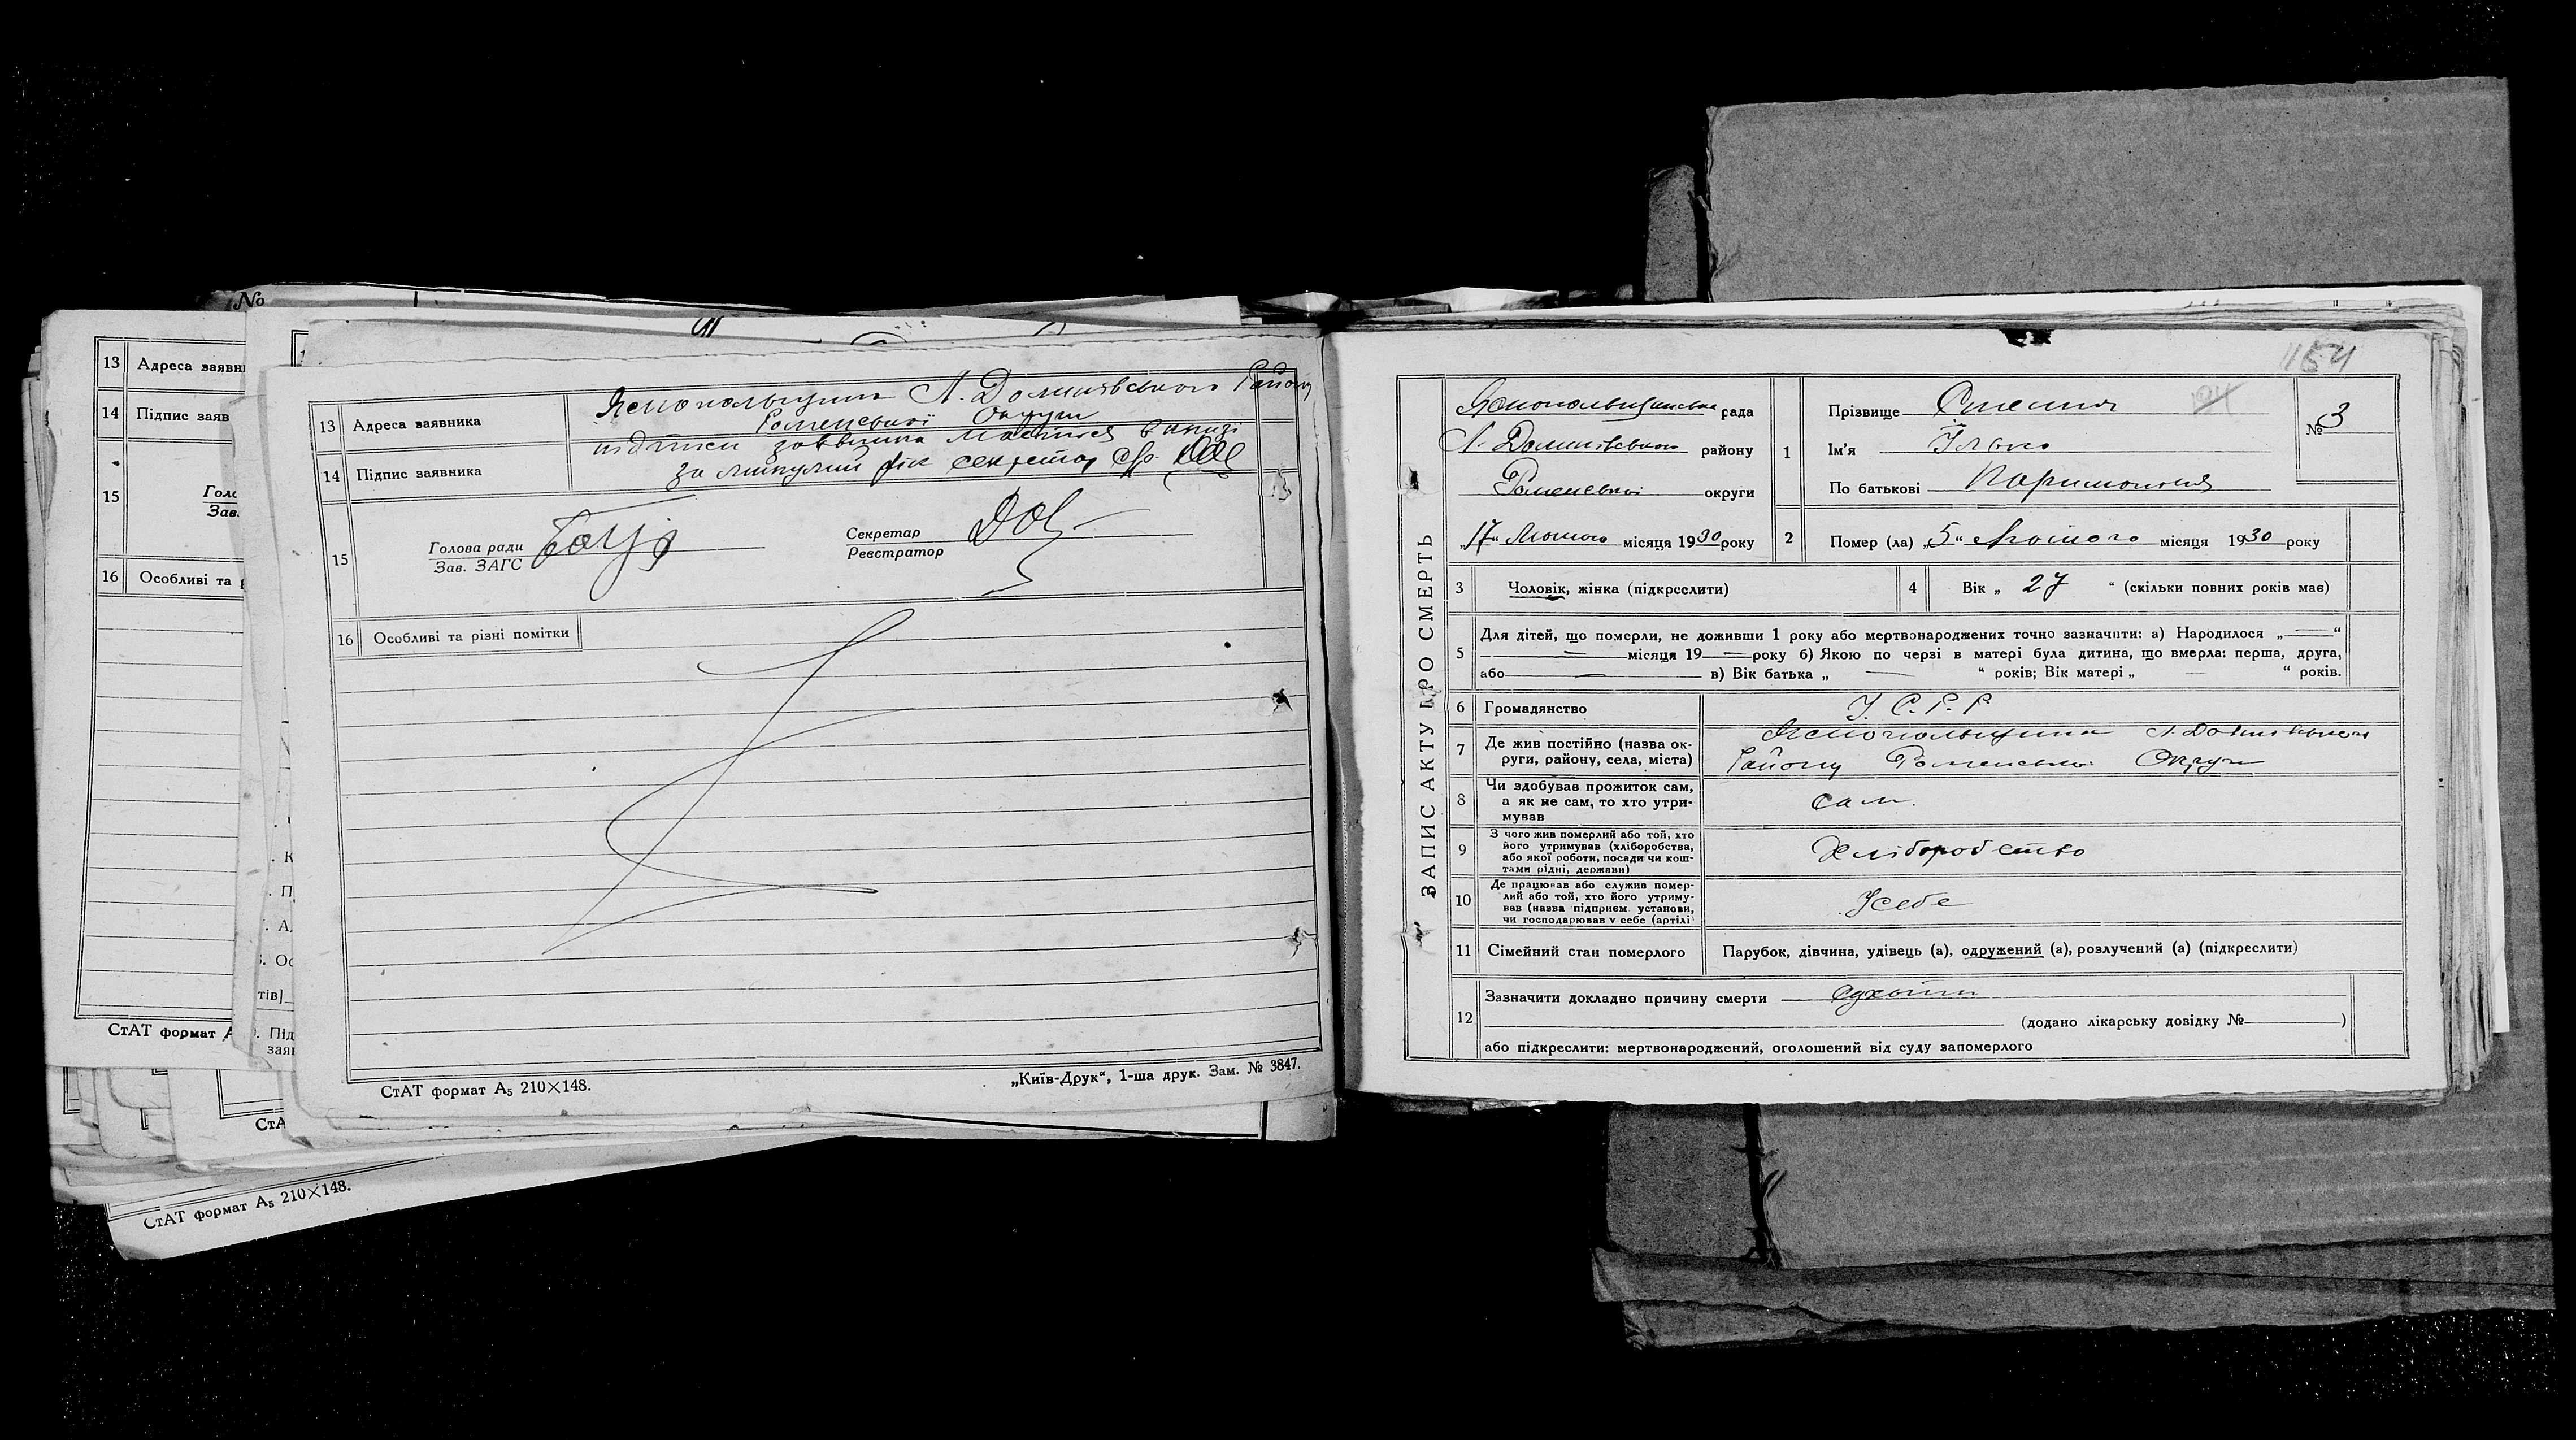 №
13 Адреса заявн
14 Підпис заяв
15
Голо
Зав.
16 Особливі та р
СтАТ формат А
. К
. П
. А
. Ос
тів]
. Під
заяв
СтА
СтАТ формат А₅ 210×148.
13 Адреса заявника Яснопольщина Л. Долинівського Району
Роменської Округи
14 Підпис заявника підписи заявника маються в книзі
за минулий рік секретар
15
Голова ради
Зав. ЗАГС
Секретар
Реєстратор
16 Особливі та різні помітки
СтАТ формат А₅ 210×148.
„Київ-Друк“, 1-ша друк. Зам. № 3847.
154
ЗАПИС АКТУ ПРО СМЕРТЬ
Яснопольщанська рада
Л. Долинівського району
Роменської округи
„17“ Лютого місяця 1930 року
1 Прізвище
Ім'я Ілько
По батькові
№ 3
2 Помер (ла) „5“ Лютого місяця 1930 року
3 Чоловік, жінка (підкреслити)
4 Вік „ 27 “ (скільки повних років має)
5 Для дітей, що померли, не доживши 1 року або мертвонароджених точно зазначити: а) Народилося „—“
— місяця 19 — року б) Якою по черзі в матері була дитина, що вмерла: перша, друга,
або — в) Вік батька „ — “ років; Вік матері „ — “ років.
6 Громадянство У. С. Р. Р.
7 Де жив постійно (назва ок-
руги, району, села, міста)
Яснопольщина Л. Долинівського
Району Роменської Округи
8 Чи здобував прожиток сам,
а як не сам, то хто утри-
мував
сам.
9 З чого жив померлий або той, хто
його утримував (хліборобства,
або якої роботи, посади чи кош-
тами рідні, держави)
Хліборобство
10 Де працював або служив помер-
лий або той, хто його утриму-
вав (назва підприєм. установи,
чи господарював у себе (артілі)
Усебе
11 Сімейний стан померлого Парубок, дівчина, удівець (а), одружений (а), розлучений (а) (підкреслити)
12 Зазначити докладно причину смерти Сухоти
(додано лікарську довідку № )
або підкреслити: мертвонароджений, оголошений від суду запомерлого